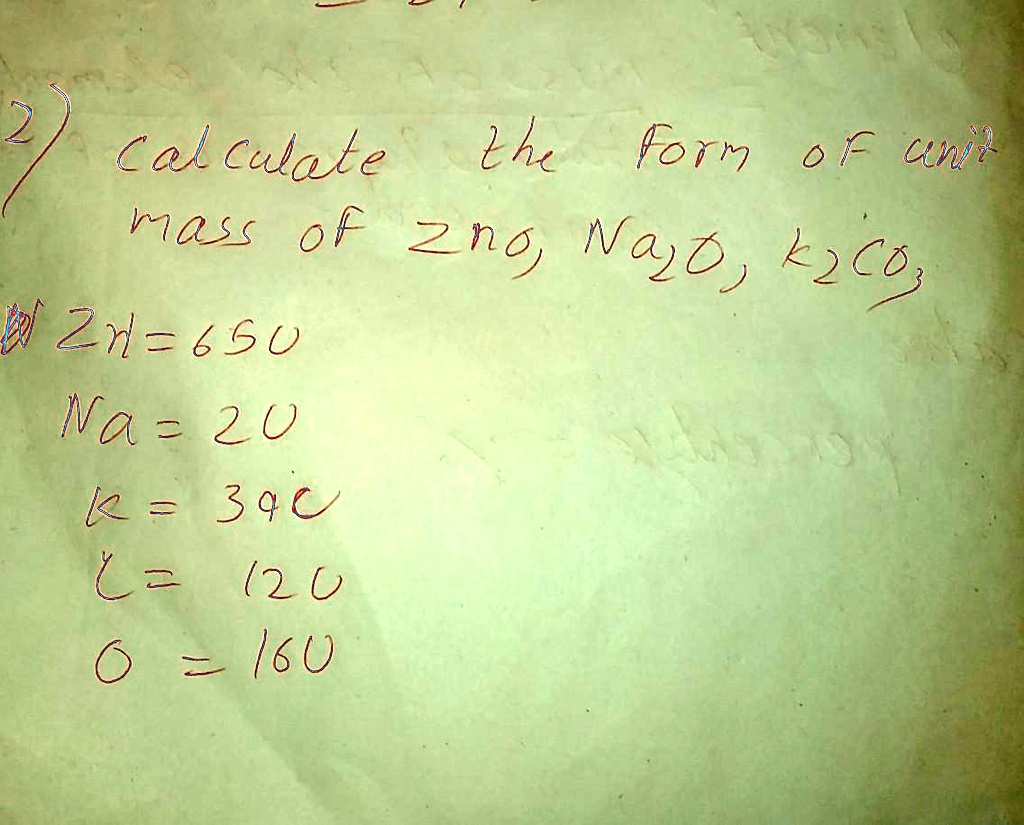 2) Calculate the Form of unit
mass of Zno, Na2O, K2CO3
Zn = 65U
Na = 2U
K = 39U
C = 12U
O = 16U